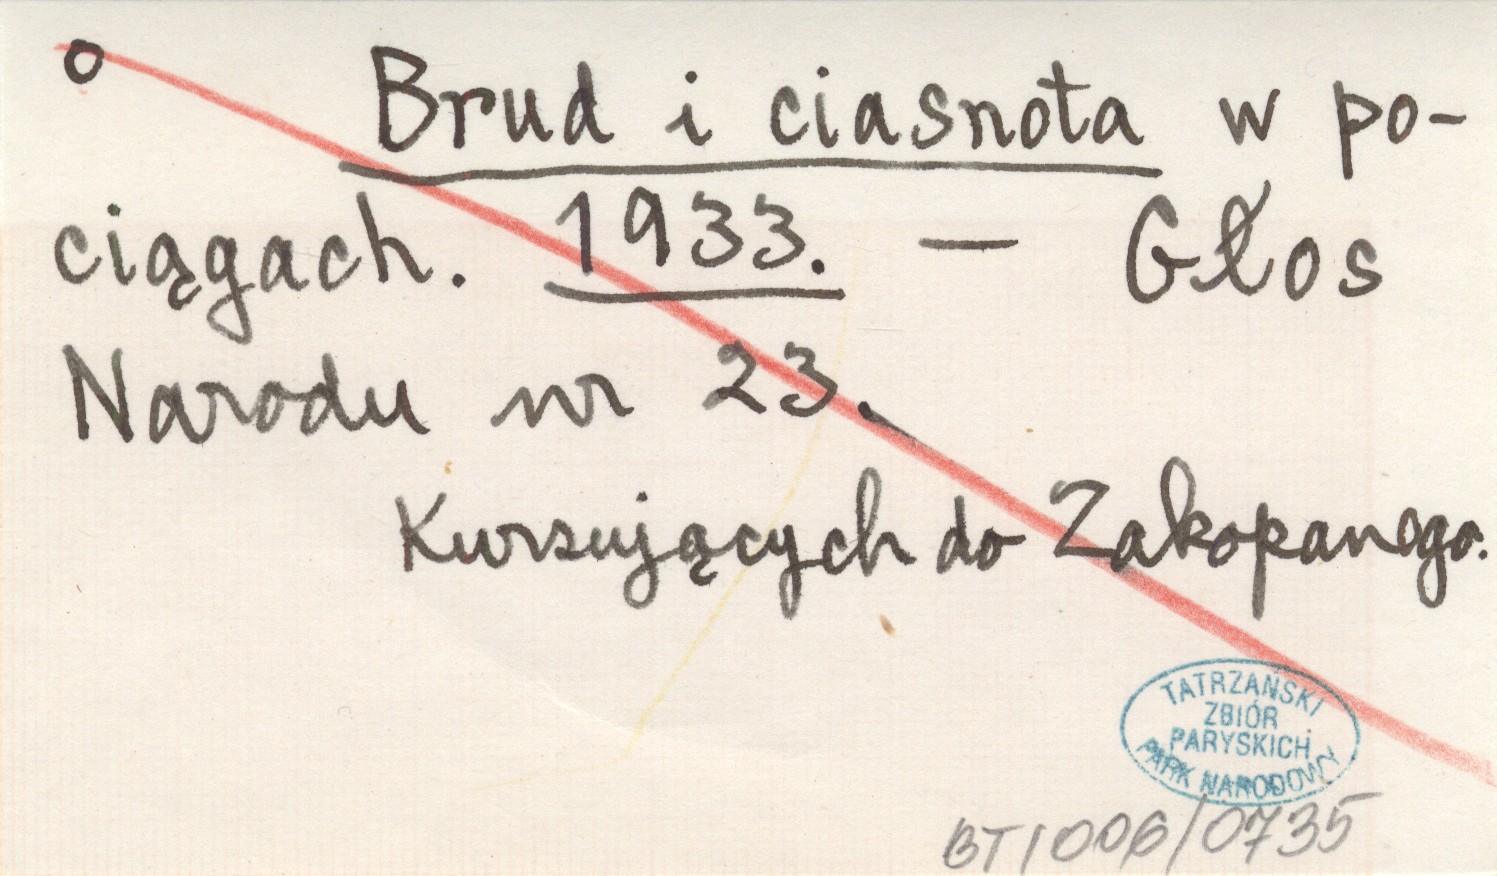 o Brud i ciasnota w po-
ciągach. 1933. — Głos
Narodu nr 23.
Kursujących do Zakopanego.
TATRZAŃSKI
ZBIÓR
PARYSKICH
PARK NARODOWY
BT/006/0735